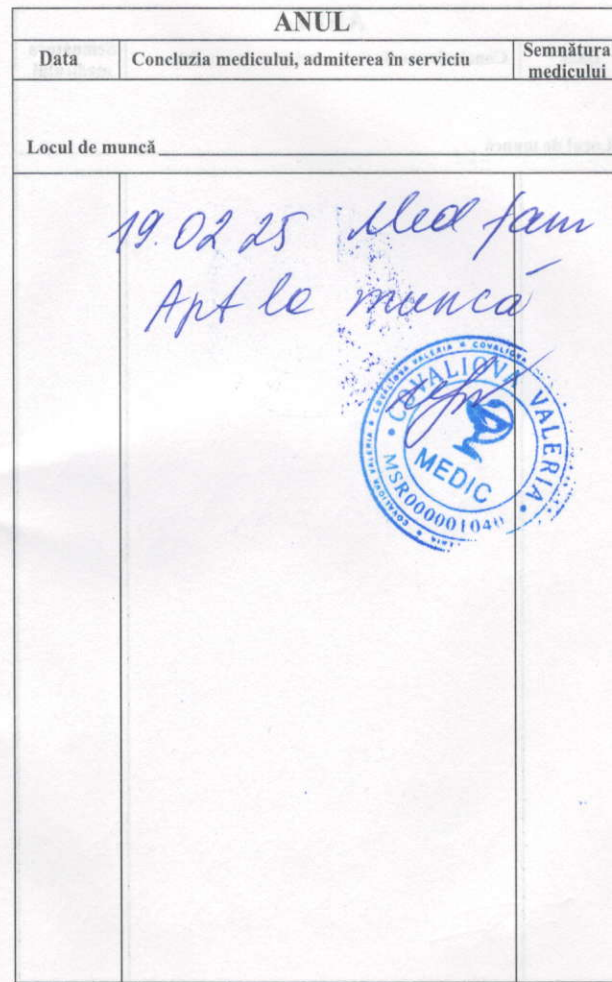 ANUL
Data
Concluzia medicului, admiterea în serviciu
Semnătura
medicului
Locul de muncă
19.02 25 Med fam
Apt la muncă
COVALIOVA VALERIA
MEDIC
MSR000001040